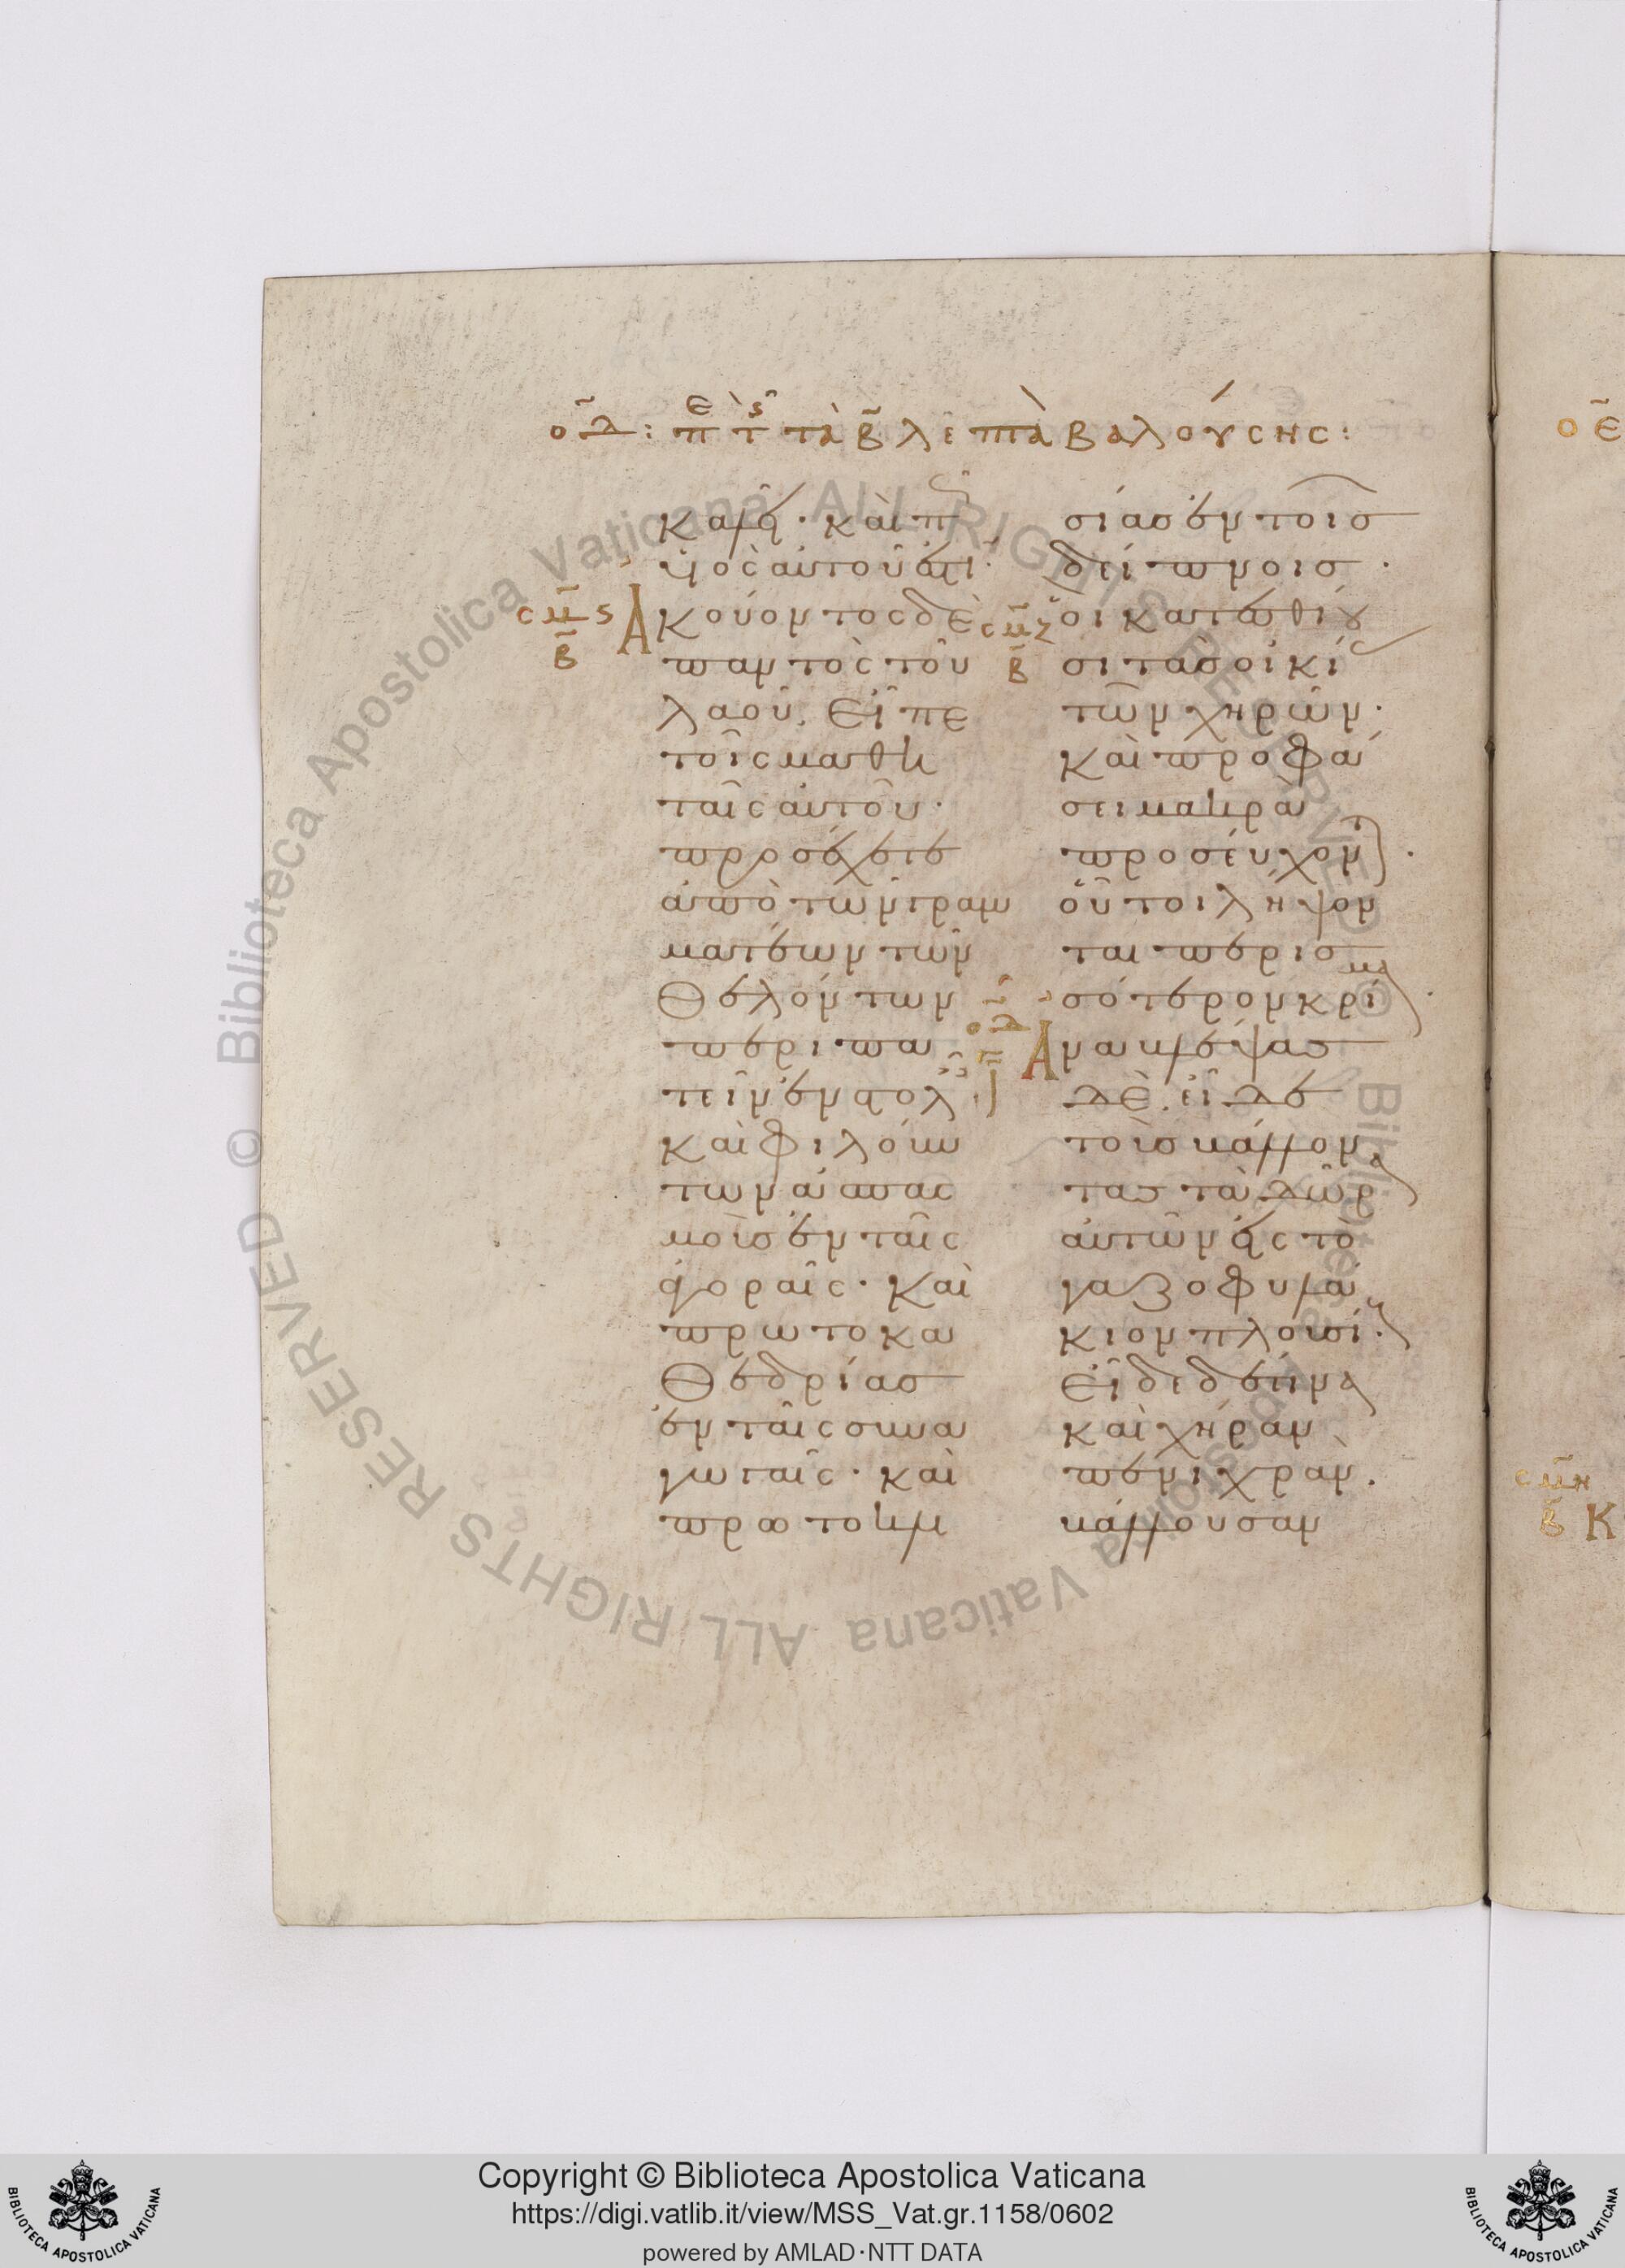 οδ: πε τς τὰ β λεπτὰ βαλούσης:
καλεῖ· καὶ πῶς
υἱὸς αὐτοῦ ἐστί·
σμς
β
Ἀκούοντος δὲ
παντὸς τοῦ
λαοῦ. εἶπε
τοῖς μαθη
ταῖς αὐτοῦ·
προσέχετε
ἀπὸ τῶν γραμ
ματέων τῶν
θελόντων
περιπα
τεῖν ἐν στολαῖς·
καὶ φιλούν
των ἀσπασ
μοὺς ἐν ταῖς
ἀγοραῖς· καὶ
πρωτοκα
θεδρίας
ἐν ταῖς συνα
γωγαῖς· καὶ
πρωτοκλι
σίας ἐν τοῖς
δείπνοις·
σμζ
β
οἳ κατεσθίου
σι τὰς οἰκί
τῶν χηρῶν·
καὶ προφά
σει μακρὰ
προσεύχονται·
οὗτοι λήψον
ται περισ
σότερον κρίμα·
οδ
Ἀναβλέψας
δὲ. εἶδε
τοὺς βάλλον
τας τὰ δῶρα
αὐτῶν εἰς τὸ
γαζοφυλά
κιον πλουσί·
εἶδε δέ τινα
καὶ χήραν
πενιχρὰν·
βάλλουσαν
οε
σμη
β
Κ
Biblioteca Apostolica Vaticana ALL RIGHTS RESERVED ©
Copyright © Biblioteca Apostolica Vaticana
https://digi.vatlib.it/view/MSS_Vat.gr.1158/0602
powered by AMLAD·NTT DATA
BIBLIOTECA APOSTOLICA VATICANA
BIBLIOTECA APOSTOLICA VATICANA